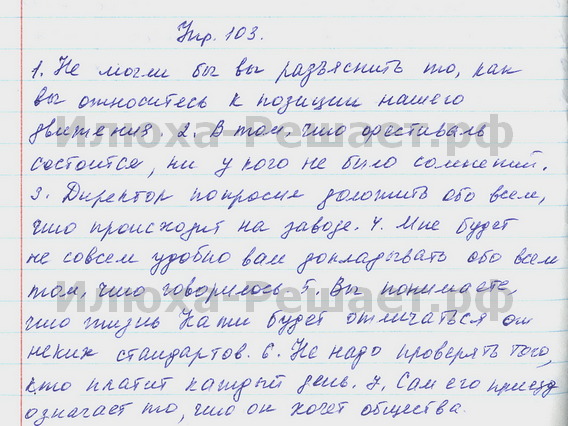 Упр. 103.
1. Не могли бы вы разъяснить то, как
вы относитесь к позиции нашего
движения. 2. В том, что фестиваль
состоится, ни у кого не было сомнений.
3. Директор попросил доложить обо всем,
что происходит на заводе. 4. Мне будет
не совсем удобно вам докладывать обо всем
том, что говорилось 5. Вы понимаете,
что жизнь Кати будет отличаться от
неких стандартов. 6. Не надо проверять того,
кто платит каждый день. 7. Сам его приезд
означает то, что он хочет общества.
Илюха-Решает.рф
Илюха-Решает.рф